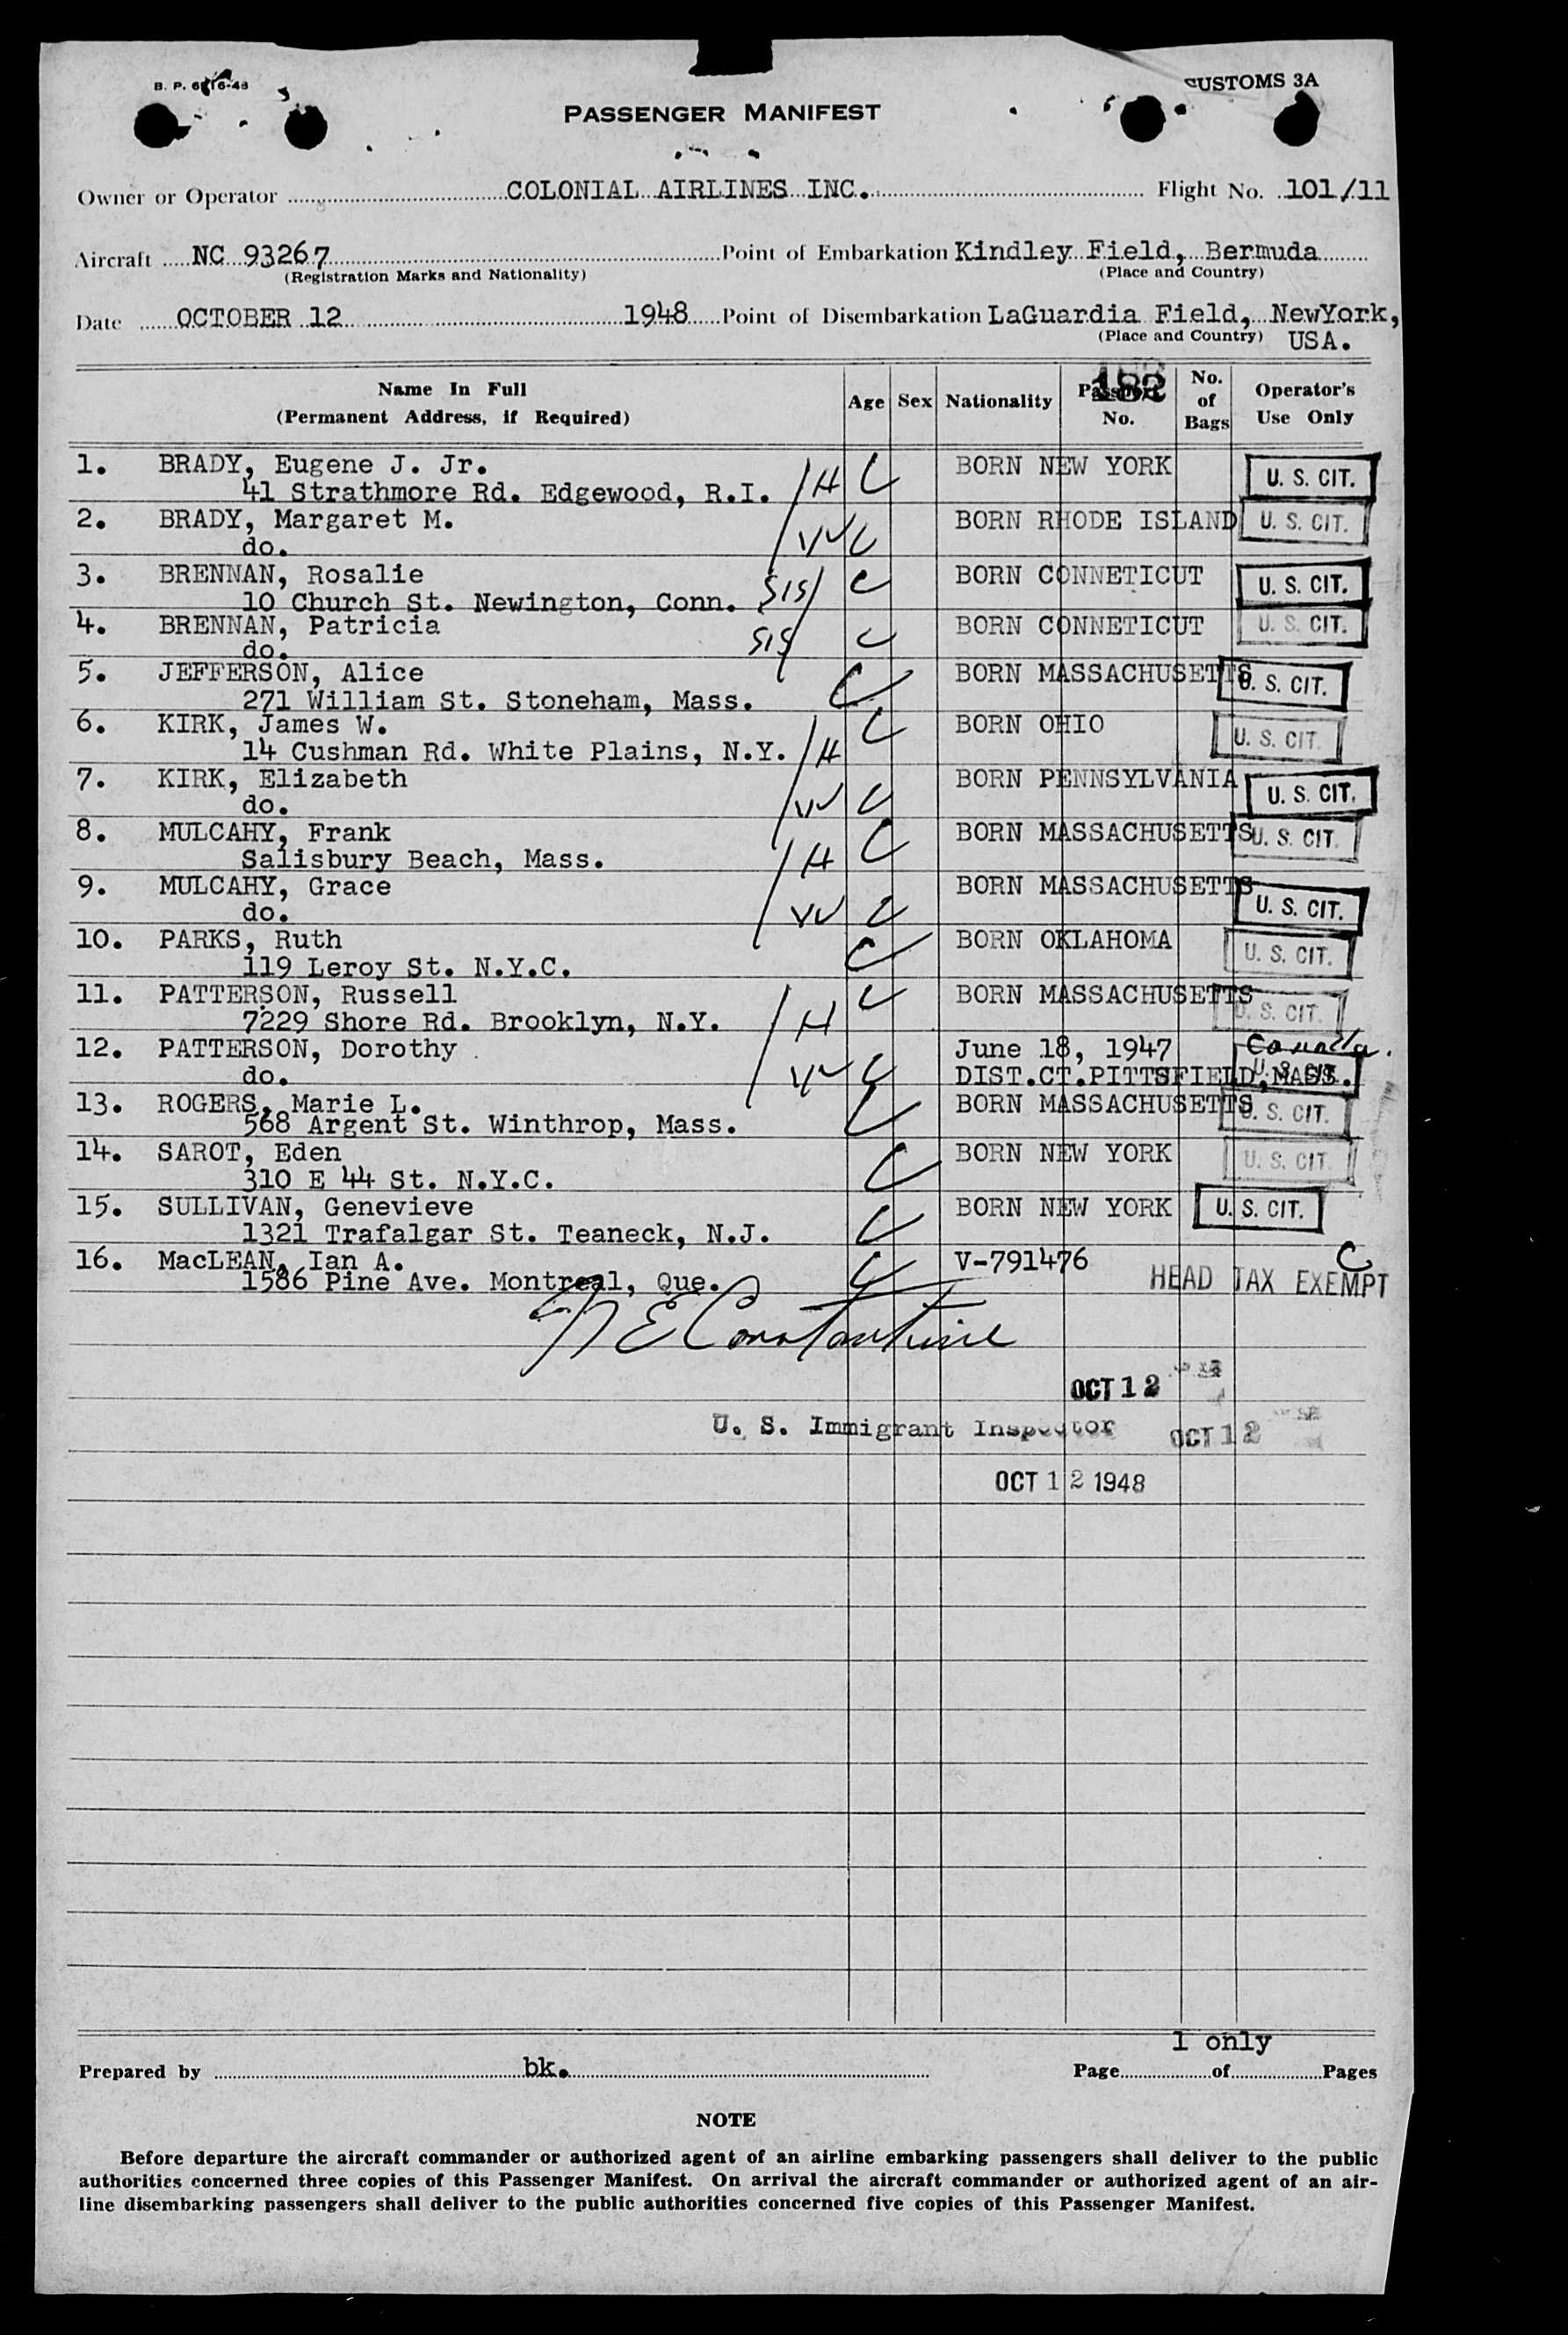 CUSTOMS 3A
PASSENGER MANIFEST
Owner or Operator COLONIAL AIRLINES INC. Flight No. 101/11
Aircraft NC 93267 Point of Embarkation Kindley Field, Bermuda
(Registration Marks and Nationality) (Place and Country)
Date OCTOBER 12 1948 Point of Disembarkation LaGuardia Field, NewYork,
(Place and Country) USA.
182
Name In Full (Permanent Address, if Required) Age Sex Nationality Passport No. No. of Bags Operator's Use Only
1. BRADY, Eugene J. Jr. C BORN NEW YORK U. S. CIT.
41 Strathmore Rd. Edgewood, R.I. H
2. BRADY, Margaret M. BORN RHODE ISLAND U. S. CIT.
do. W C
3. BRENNAN, Rosalie C BORN CONNETICUT U. S. CIT.
10 Church St. Newington, Conn. SIS
4. BRENNAN, Patricia C BORN CONNETICUT U. S. CIT.
do. SIS
5. JEFFERSON, Alice C BORN MASSACHUSETTS U. S. CIT.
271 William St. Stoneham, Mass.
6. KIRK, James W. C BORN OHIO U. S. CIT.
14 Cushman Rd. White Plains, N.Y. H
7. KIRK, Elizabeth BORN PENNSYLVANIA U. S. CIT.
do. W C
8. MULCAHY, Frank C BORN MASSACHUSETTS U. S. CIT.
Salisbury Beach, Mass. H
9. MULCAHY, Grace BORN MASSACHUSETTS U. S. CIT.
do. W C
10. PARKS, Ruth C BORN OKLAHOMA U. S. CIT.
119 Leroy St. N.Y.C.
11. PATTERSON, Russell C BORN MASSACHUSETTS U. S. CIT.
7229 Shore Rd. Brooklyn, N.Y. H
12. PATTERSON, Dorothy June 18, 1947 Canada.
do. W C DIST.CT.PITTSFIELD,MASS. U. S. CIT.
13. ROGERS, Marie L. C BORN MASSACHUSETTS U. S. CIT.
568 Argent St. Winthrop, Mass.
14. SAROT, Eden C BORN NEW YORK U. S. CIT.
310 E 44 St. N.Y.C.
15. SULLIVAN, Genevieve C BORN NEW YORK U. S. CIT.
1321 Trafalgar St. Teaneck, N.J.
16. MacLEAN, Ian A. C V-791476 C
1586 Pine Ave. Montreal, Que. HEAD TAX EXEMPT
N E Constantine
OCT 12
U. S. Immigrant Inspector OCT 12
OCT 12 1948
1 only
Prepared by bk. Page of Pages
NOTE
Before departure the aircraft commander or authorized agent of an airline embarking passengers shall deliver to the public
authorities concerned three copies of this Passenger Manifest. On arrival the aircraft commander or authorized agent of an air-
line disembarking passengers shall deliver to the public authorities concerned five copies of this Passenger Manifest.